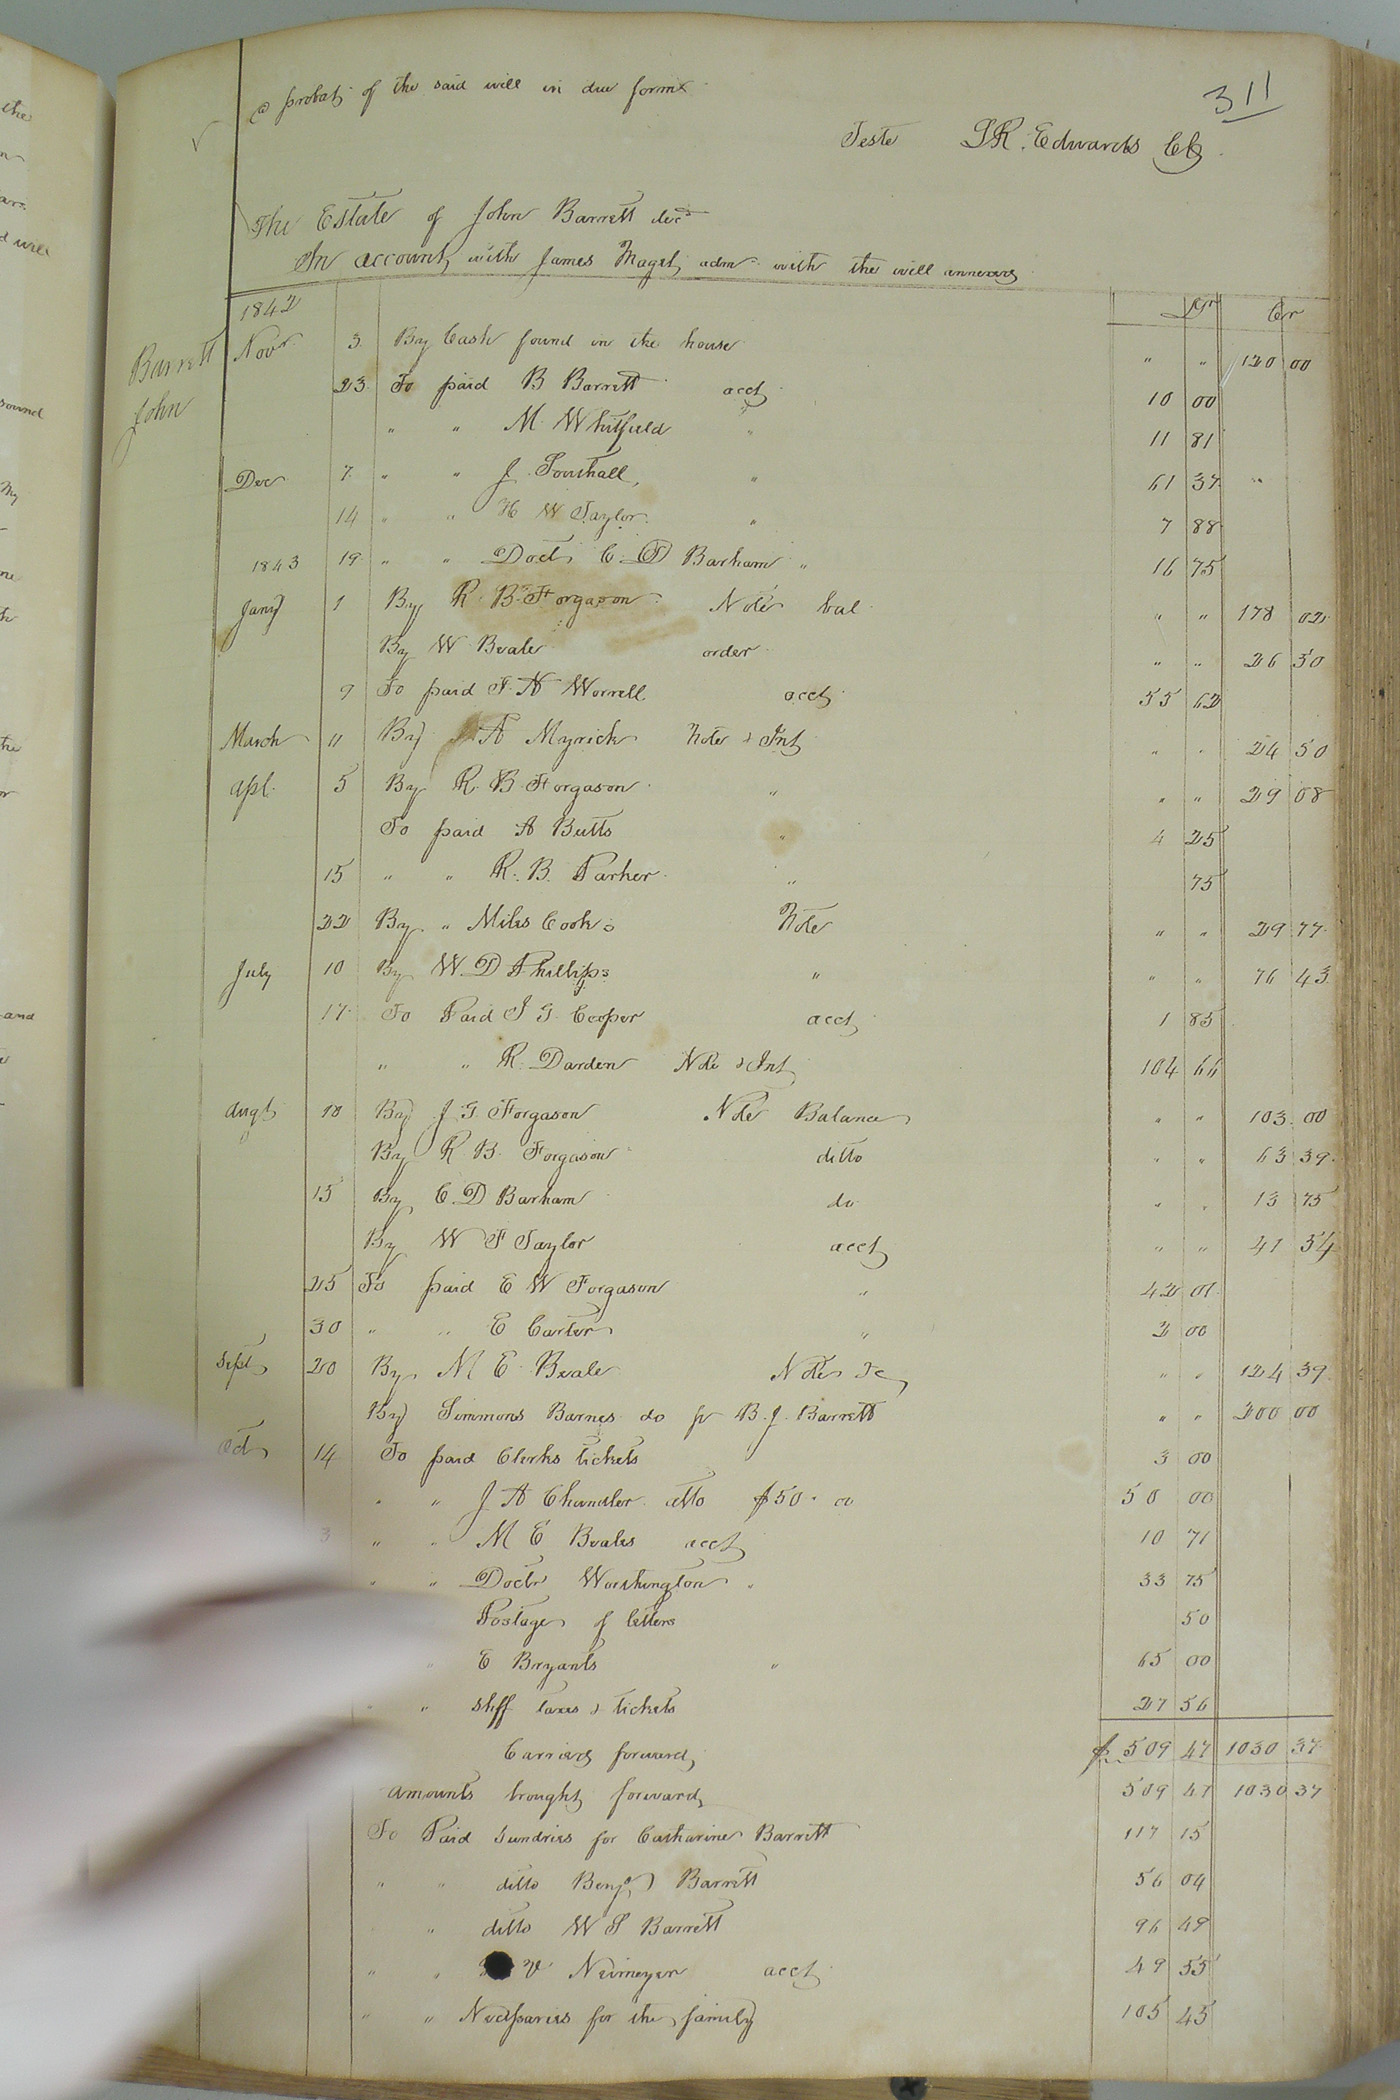 311
@ probat of the said will in due form
Teste L R. Edwards Clk
The Estate of John Barrett decd
In account with James Maget admr with the will annexed
Dr Cr
1842
Barrett John
Novr 3 By Cash found in the house " " 120 00
23 To paid B Barrett acct 10 00
" " M Whitfield " 11 81
Dec 7 " " J. " 61 37
14 " " H W Taylor " 7 88
1843 19 " " Doct C. D Barham " 16 75
Jany 1 By R. B. Forgason Note bal " " 178 02
By W Beale order " " 26 50
9 To paid J. N Worrell acct 55 62
March 11 By A Myrick Note & Int " " 24 50
apl. 5 By R. B. Forgason " " " 29 08
To paid A Butts " 4 25
15 " " R. B. Parker " 75
22 By " Miles Cooks Note " " 29 77
July 10 By W. D Phillips " " " 76 43
17 To Paid J G. Cooper acct 1 85
" " R. Darden Note & Int 104 66
Augt 10 By J. G Forgason Note Balance " " 103 00
By R B. Forgason ditto " " 63 39
15 By C. D Barham do " " 13 75
By W F Taylor acct " " 41 54
25 To paid E W Forgason " 42 01
30 " " E Carter " 2 00
Sept 20 By M E. Beale Note &c " " 124 39
By Simmons Barnes do pr B. J. Barrett " " 200 00
Oct 14 To paid Clerks tickets 3 00
" " J A Chandler ditto $50.00 50 00
3 " " M E Beales acct 10 71
" " Doctr Worthington " 33 75
Postage of letters 50
" E Bryants " 65 00
" " shff taxes & tickets 27 56
Carried forward $ 509 47 1030 37
Amounts brought forward 509 47 1030 37
To Paid Sundries for Catharine Barrett 117 15
" " ditto Benja Barrett 56 04
" ditto W S Barrett 96 49
" " V Nevmeyer acct 49 55
" " Necessaries for the family 105 45